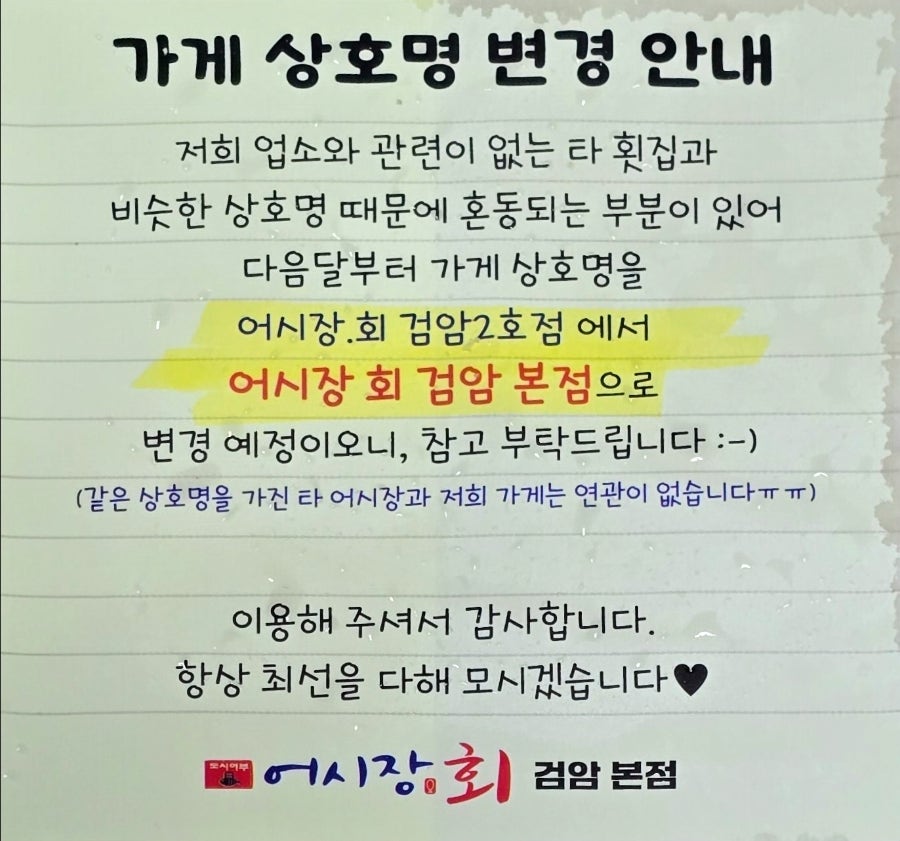 가게 상호명 변경 안내
저희 업소와 관련이 없는 타 횟집과
비슷한 상호명 때문에 혼동되는 부분이 있어
다음달부터 가게 상호명을
어시장.회 검암2호점 에서
어시장 회 검암 본점으로
변경 예정이오니, 참고 부탁드립니다 :-)
(같은 상호명을 가진 타 어시장과 저희 가게는 연관이 없습니다ㅠㅠ)
이용해 주셔서 감사합니다.
항상 최선을 다해 모시겠습니다♥
도시어부 어시장 회 검암 본점